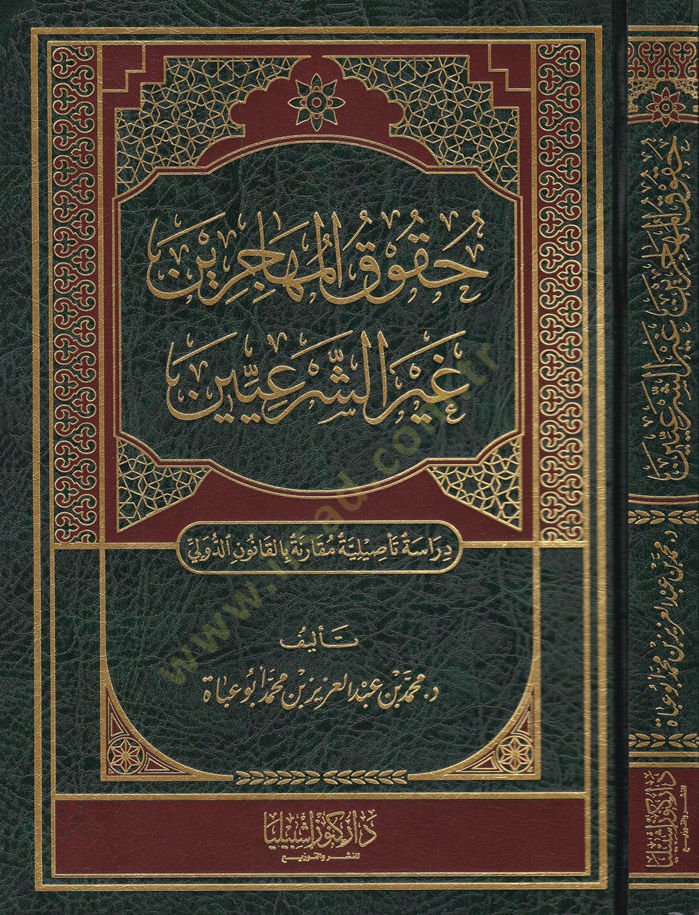 حُقُوقُ المُهَاجِرِينَ
غَيْرِ الشَّرْعِيِّينَ
دِرَاسَةٌ تَأْصِيلِيَّةٌ مُقَارَنَةٌ بِالقَانُونِ الدُّوَلِيِّ
تَأليف
د. محمد بن عبد العزيز بن محمد أبو عباة
دار كنوز إشبيليا
للنشر والتوزيع
حقوق المهاجرين غير الشرعيين
د. محمد بن عبد العزيز بن محمد أبو عباة
دار كنوز إشبيليا
للنشر والتوزيع